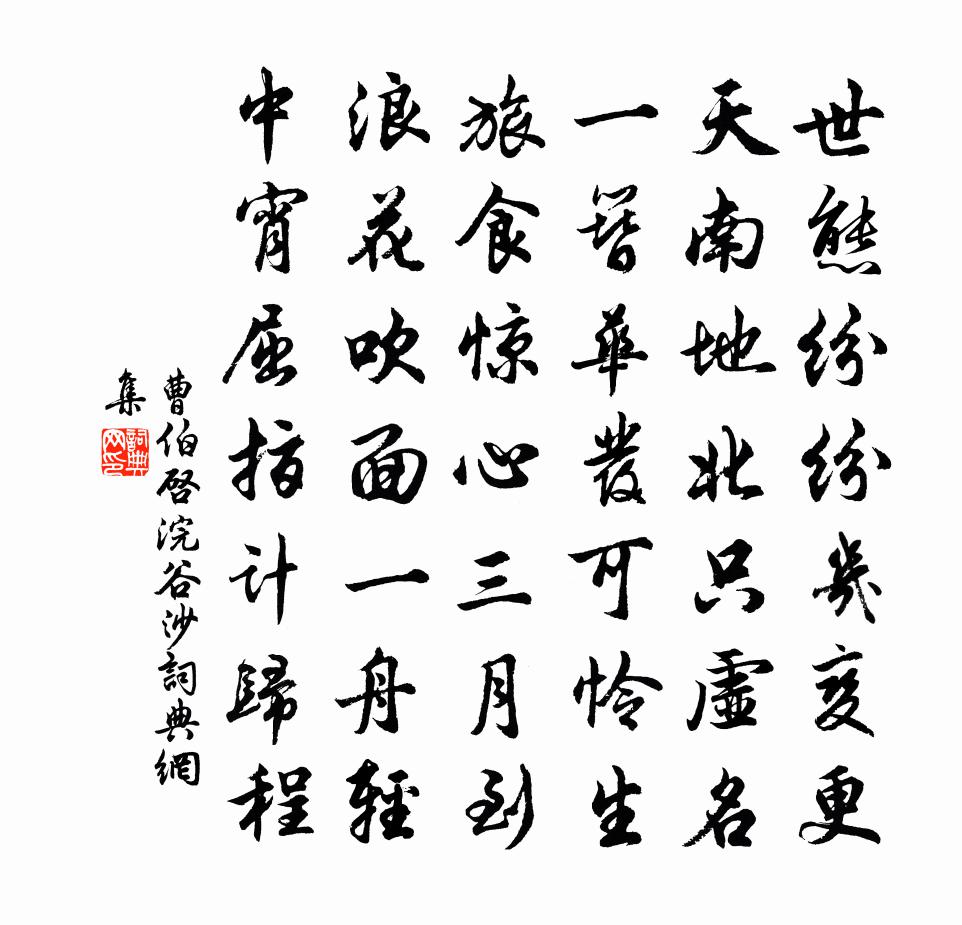 世態紛紛幾變更
天南地北只虛名
一簪華髮可怜生
旅食惊心三月到
浪花吹面一舟輕
中宵屈指计歸程
曹伯啓浣谷沙詞典網
集
詞典网印